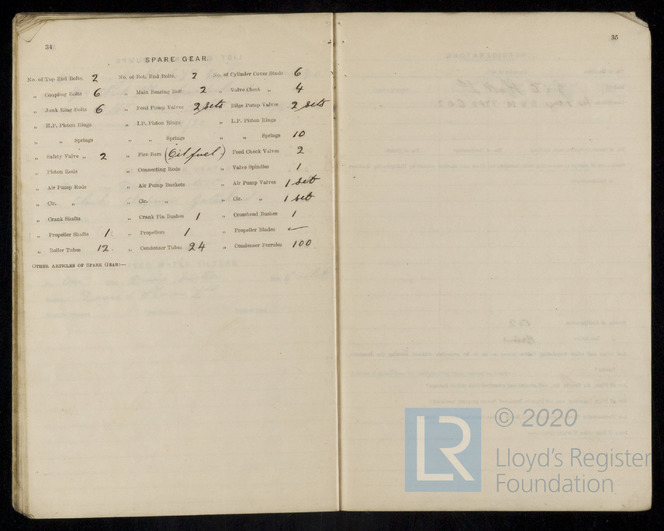 34
SPARE GEAR.
No. of Top End Bolts, 2 No. of Bot. End Bolts, 2 No. of Cylinder Cover Studs 6
„ Coupling Bolts 6 „ Main Bearing Bolts 2 „ Valve Chest „ 4
„ Junk Ring Bolts 6 „ Feed Pump Valves 2 sets „ Bilge Pump Valves 2 sets
„ H.P. Piston Rings „ I.P. Piston Rings „ L.P. Piston Rings
„ „ Springs „ „ Springs „ „ Springs 10
„ Safety Valve „ 2 „ Fire Bars (Oil fuel) „ Feed Check Valves 2
„ Piston Rods „ Connecting Rods „ Valve Spindles 1
„ Air Pump Rods „ Air Pump Buckets „ Air Pump Valves 1 set
„ Cir. „ „ Cir. „ „ Cir. „ 1 set
„ Crank Shafts „ Crank Pin Bushes 1 „ Crosshead Bushes 1
„ Propeller Shafts 1 „ Propellers 1 „ Propeller Blades —
„ Boiler Tubes 12 „ Condenser Tubes 24 „ Condenser Ferrules 100
OTHER ARTICLES OF SPARE GEAR:—
35
© 2020
LR
Lloyd's Register
Foundation